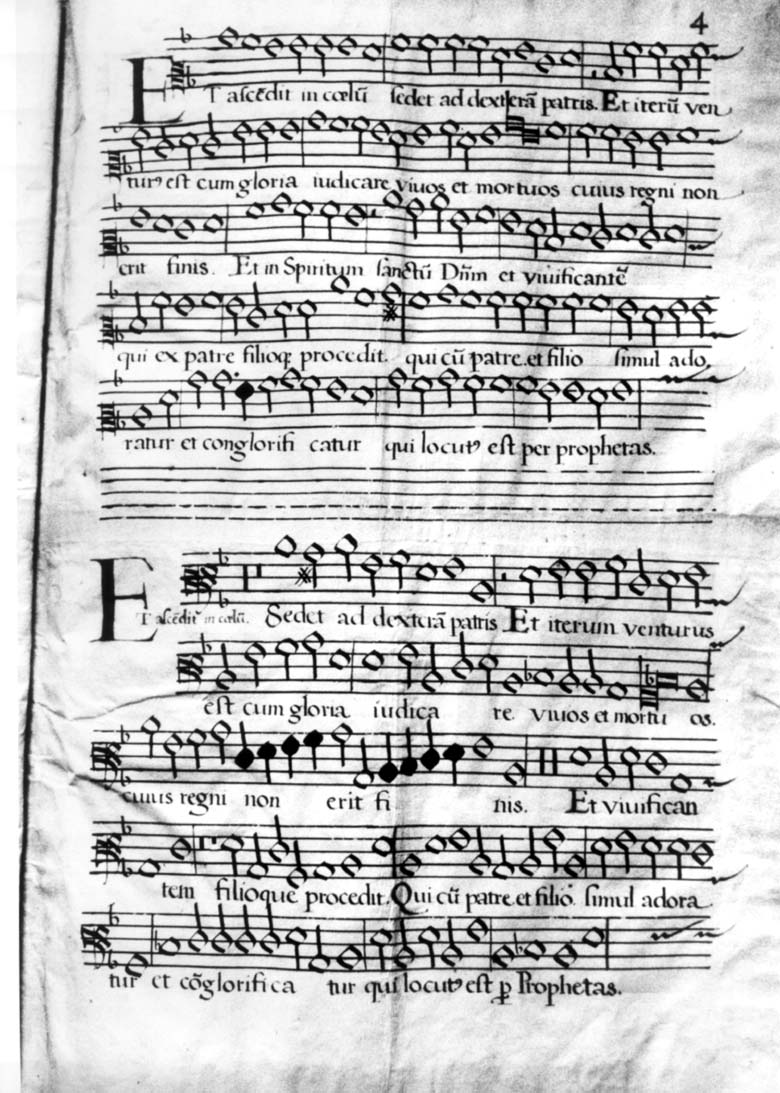 4
ET ascēdit in cœlū sedet ad dexterā patris. Et iterū ven
turꝰ est cum gloria iudicare viuos et mortuos cuius regni non
erit finis. Et in Spiritum sanctū Dñm et viuificantē
qui ex patre filioqꝫ procedit. qui cū patre et filio simul ado,
ratur et conglorifi catur qui locutꝰ est per prophetas.
ET ascēdit in cœlū. Sedet ad dexterā patris Et iterum venturus
est cum gloria iudica re. viuos et mortu os.
cuius regni non erit fi nis. Et viuifican
tem filioque procedit. Qui cū patre et filio simul adora
tur et cōglorifica tur qui locutꝰ est ꝑ Prophetas.